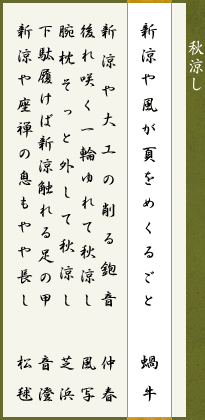 秋涼し
新涼や風が頁をめくるごと 蝸牛
新涼や大工の削る鉋音 仲春
後れ咲く一輪ゆれて秋涼し 風写
腕枕そっと外して秋涼し 芝浜
下駄履けば新涼触れる足の甲 音澄
新涼や座禅の息もやや長し 松毬